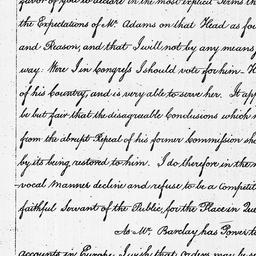 favor of you to declare in the most explicit Terms th
the Expectations of Mr. Adams on that Head as fou
and Reason, and that I will not by any means
way. Were I in Congress I should vote for him— H
of his Country, and is very able to serve her. It app
be but fair that the disagreable Conclusions which m
from the abrupt Repeal of his former Commission sho
by its being restored to him. I do therefore in the m
vocal manner decline and refuse to be a Competit
faithful Servant of the Public, for the Place in Que
As Mr. Barclay has Power to
accounts in Europe, I wish that Orders may be s